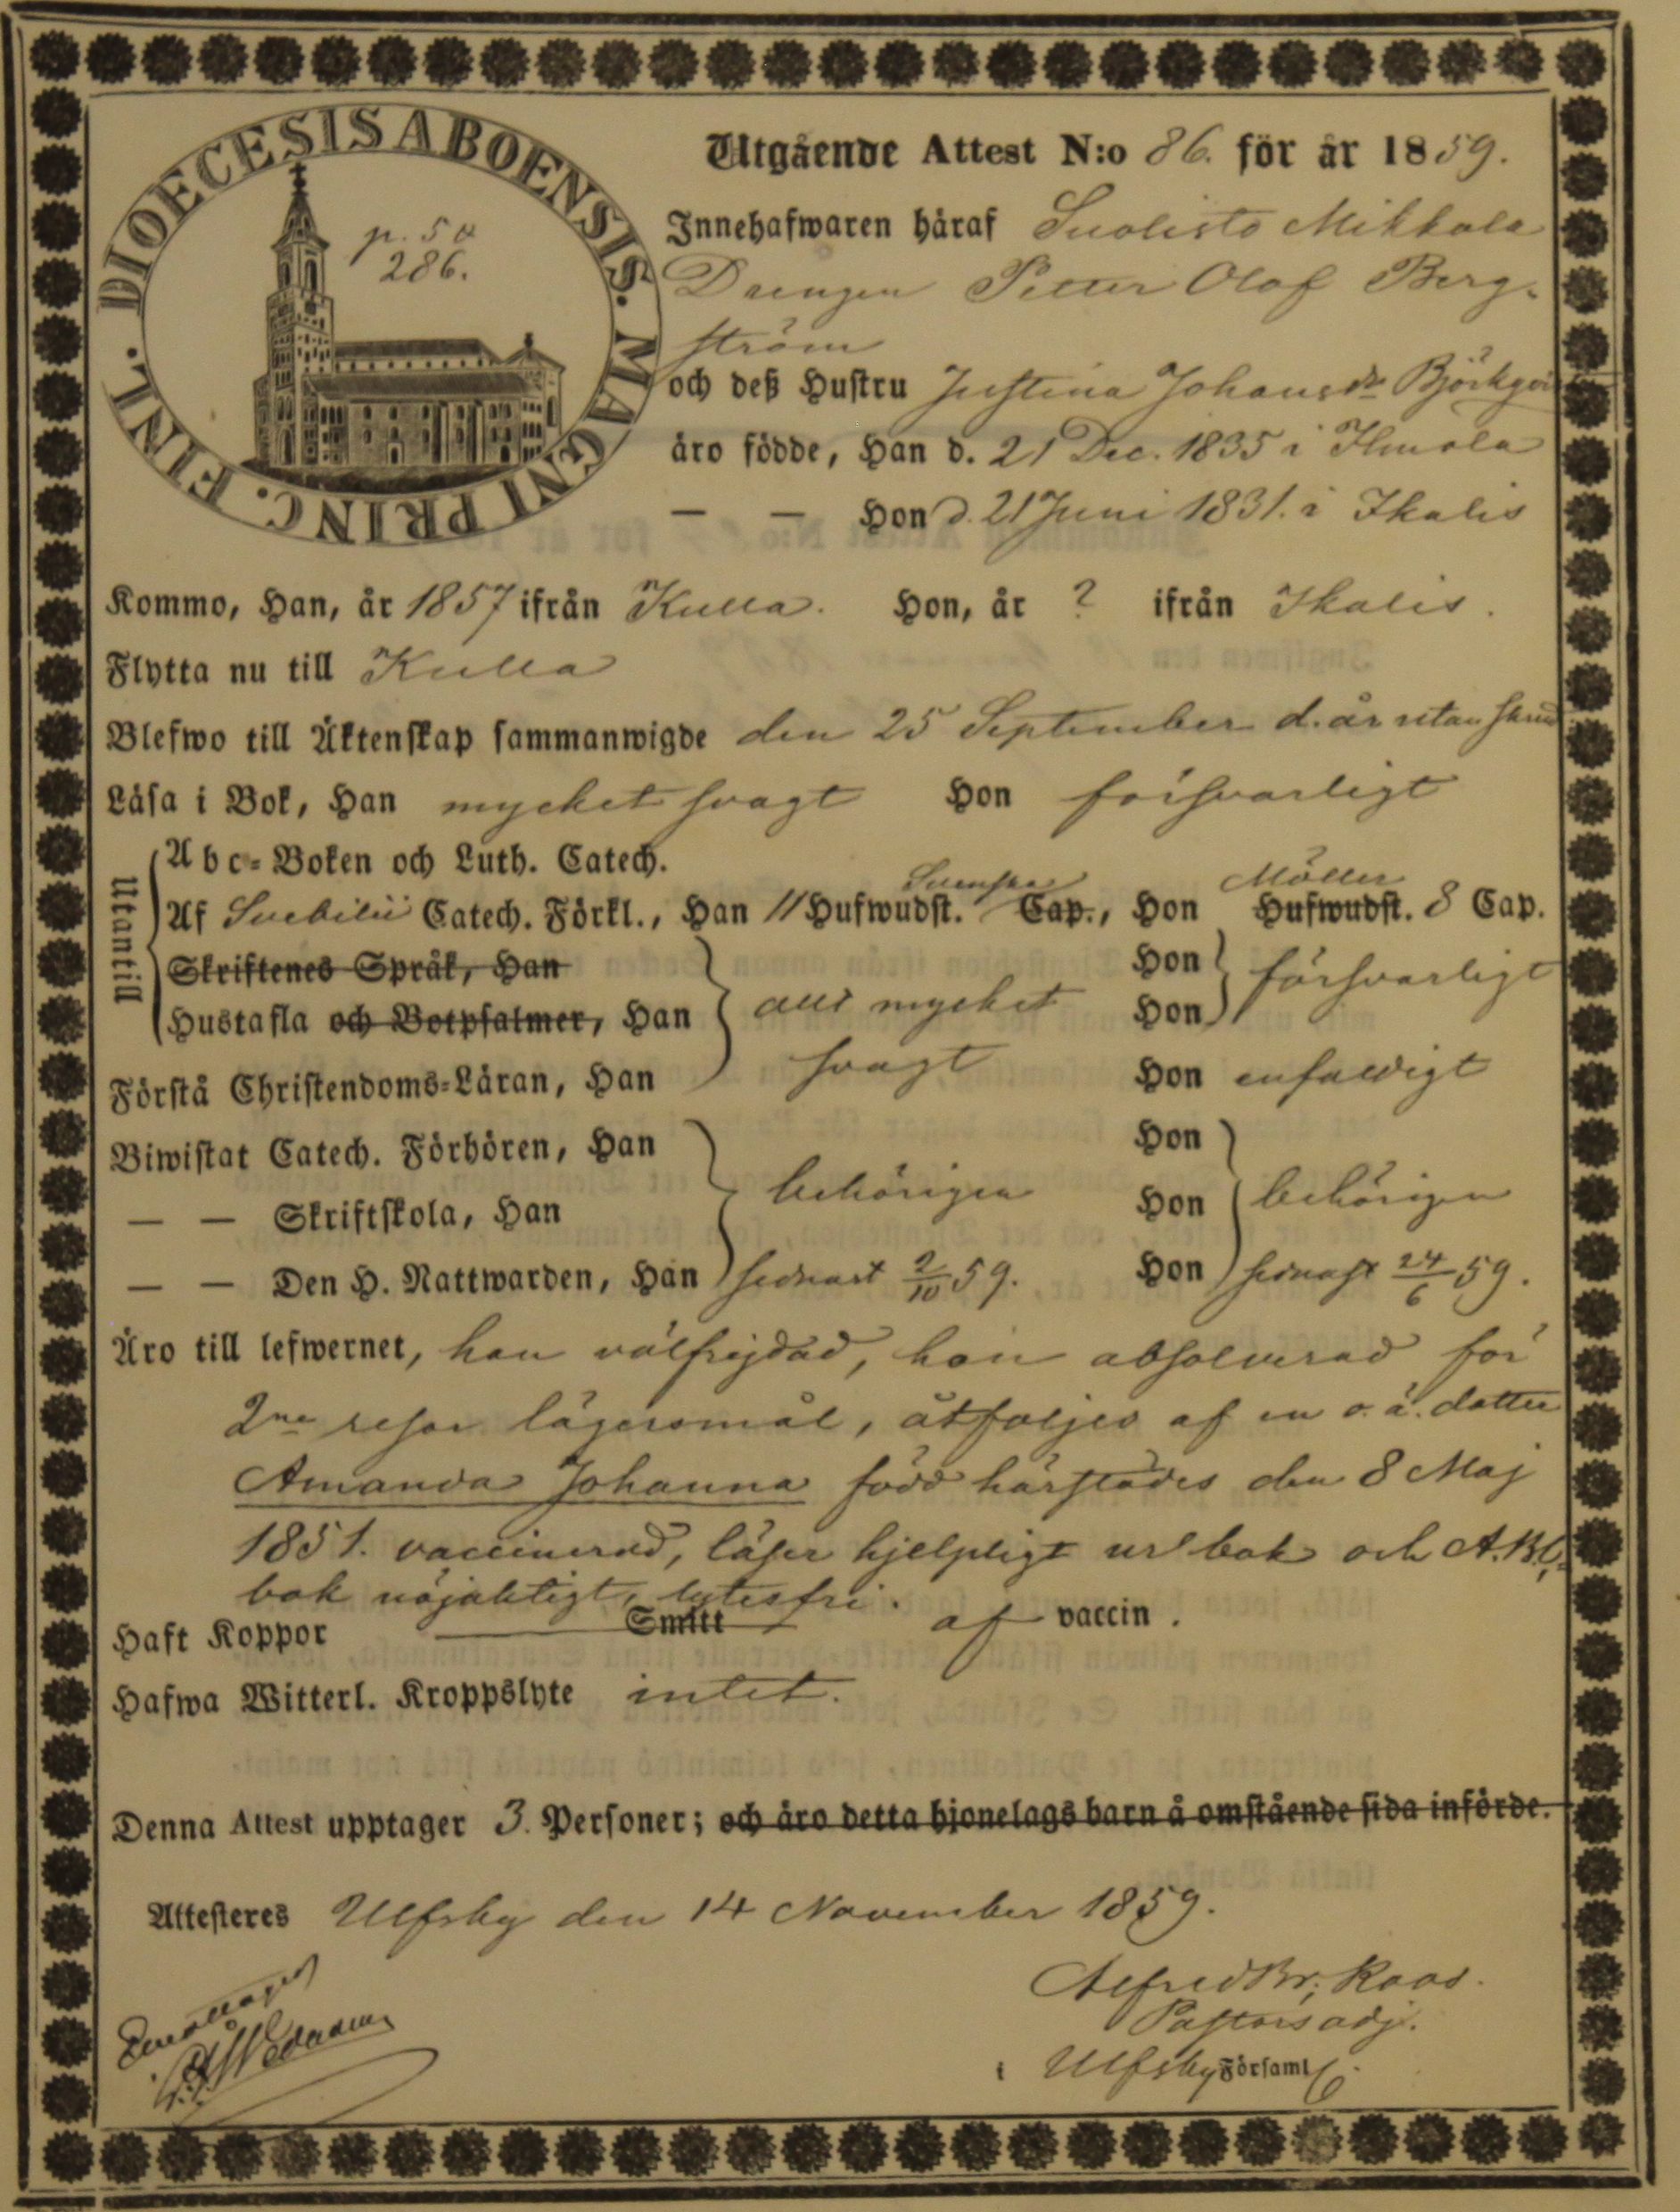 DIOECESIS ABOENSIS. MAGNI PRINC. FINL.
p. 54
286.
Utgående Attest N:o 86. för år 1859.
Innehafwaren häraf Suolisto Mikkola
Drengen Petter Olof Berg-
ström
och deß Hustru Justina Johansdr Björkqvi
äro födde, Han d. 21 Dec. 1835 i Ilmola
— — Hon d. 21 Juni 1831. i Ikalis
Kommo, Han, år 1857 ifrån Kulla. Hon, år ? ifrån Ikalis.
Flytta nu till Kulla
Blefwo till Äktenskap sammanwigde den 25 September d. år utan skrud
Läsa i Bok, Han mycket svagt Hon försvarligt
Utantill
Abc-Boken och Luth. Catech.
Svenska Möller
Af Svebilii Catech. Förkl., Han 11 Hufwudst. Cap., Hon Hufwudst. 8 Cap.
Skriftenes Språk, Han Hon försvarligt
Hustafla och Botpsalmer, Han allt mycket Hon
Förstå Christendoms-Läran, Han svagt Hon enfaldigt
Biwistat Catech. Förhören, Han Hon
— — Skriftskola, Han behörigen Hon behörigen
— — Den H. Nattwarden, Han sednast 2/10 59. Hon sednast 24/6 59.
Äro till lefwernet, han välfrejdad, hon absolverad för
2ne resor lägersmål, åtföljes af en o. ä. dotter
Amanda Johanna född härstädes den 8 Maj
1851. vaccinerad, läser hjelpligt ur bok och A.B.C.
bok nöjaktigt, lytesfri.
Haft Koppor Smitt af vaccin.
Hafwa Witterl. Kroppslyte intet.
Denna Attest upptager 3. Personer; och äro detta hjonelags barn å omstående sida införde.
Attesteres Ulfsby den 14 November 1859.
Alfred Br. Roos.
Pastors adj.
i Ulfsby Församl.